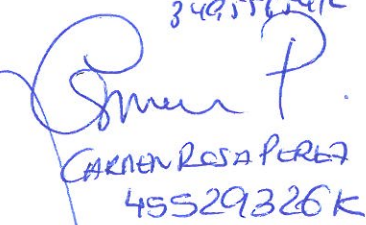 Carmen P.
CARMEN ROSA PEREZ
45529326K